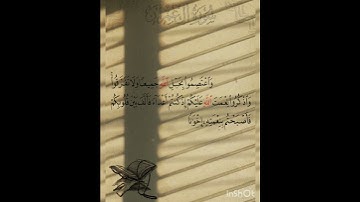 وَاعْتَصِمُوا بِحَبْلِ اللَّهِ جَمِيعًا وَلَا تَفَرَّقُوا
وَاذْكُرُوا نِعْمَتَ اللَّهِ عَلَيْكُمْ إِذْ كُنتُمْ أَعْدَاءً فَأَلَّفَ بَيْنَ قُلُوبِكُمْ
فَأَصْبَحْتُم بِنِعْمَتِهِ إِخْوَانًا
InShOt